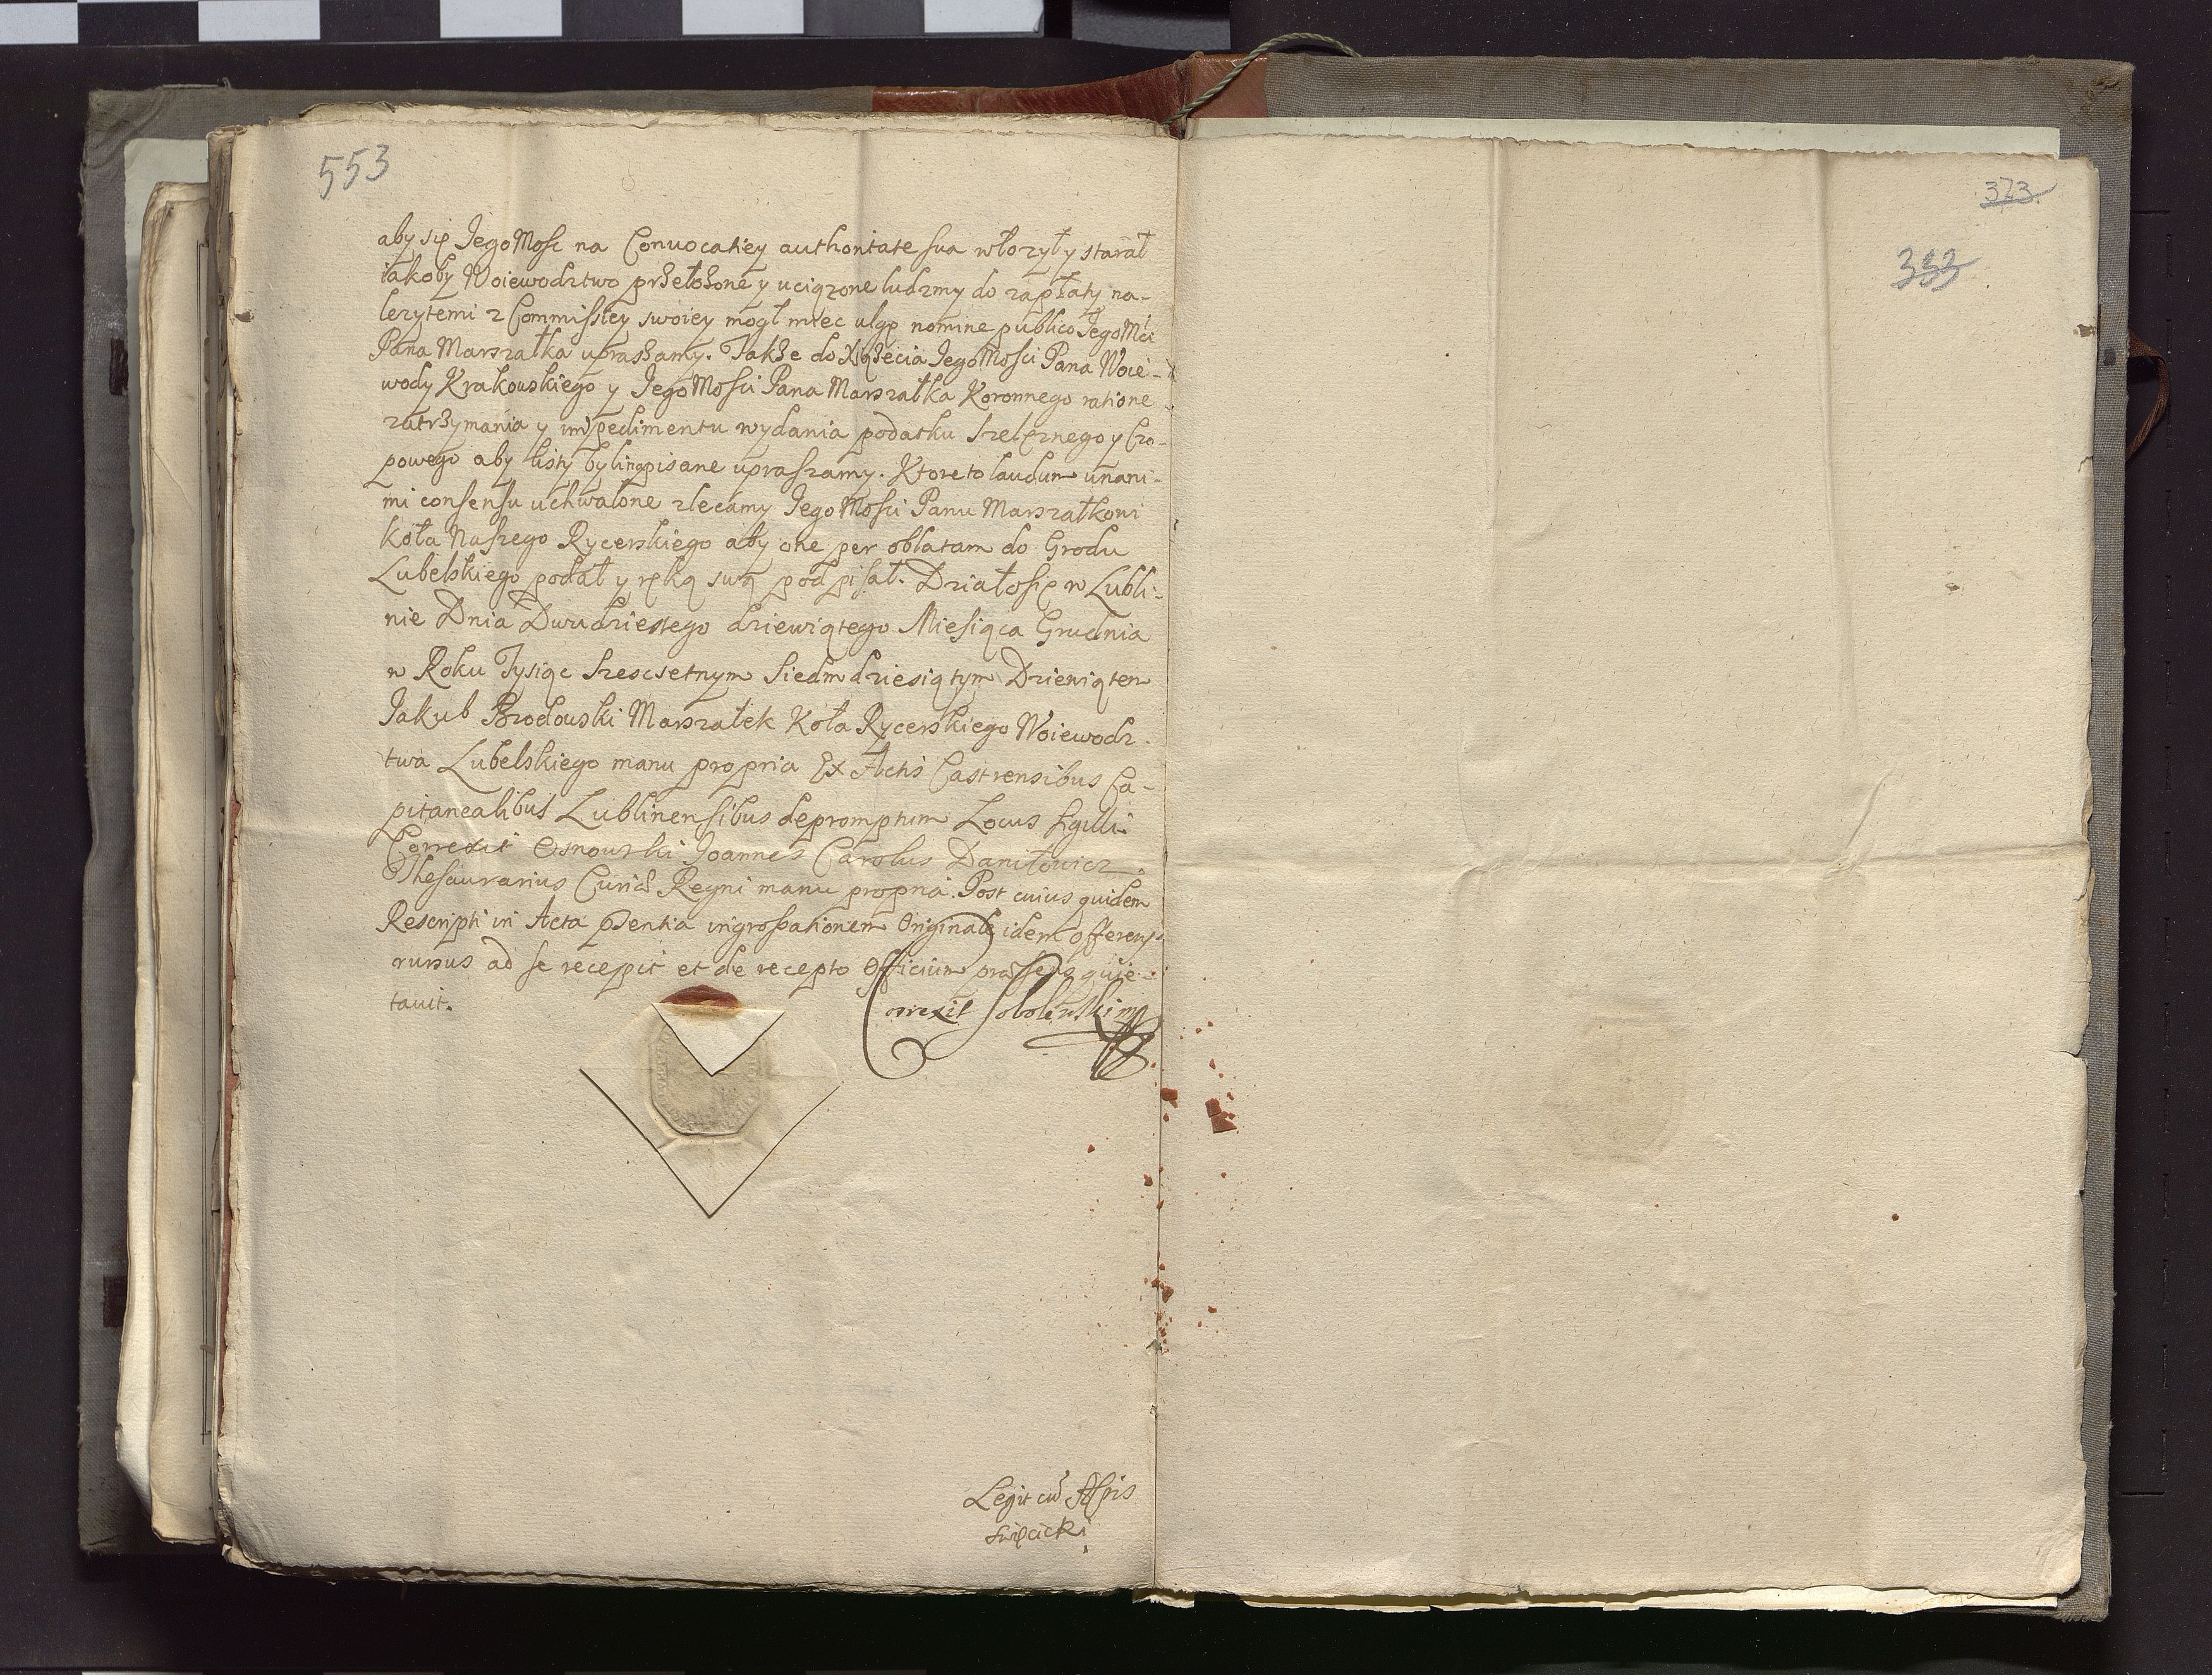 553
373
353
aby się JegoMosc na Convocatiey authoritate sua włozył y starał
iakoby Woiewodztwo przełozone y uciązone ludzmy do zapłaty na-
lezytemi z Commissiey swoiey mogł miec ulgę nomine publico JegoMci
Pana Marszałka upraszamy. Takze do Xiązecia JegoMosci Pana Woie-
wody Krakowskiego y JegoMosci Pana Marszałka Koronnego ratione
zatrzymania y impedimentu wydania podatku Szelęznego y Czo-
powego aby listy były napisane upraszamy. Ktore to laudum unani-
mi consensu uchwalone zlecamy JegoMosci Panu Marszałkowi
koła Naszego Rycerskiego aby one per oblatam do Grodu
Lubelskiego podał y ręką swą podpisał. Działo się w Lubli-
nie Dnia Dwudziestego dziewiątego Miesiąca Grudnia
w Roku Tysiąc Szescsetnym Siedmdziesiątym Dziewiątem
Jakub Brodowski Marszałek Koła Rycerskiego Woiewodz-
twa Lubelskiego manu propria Ex Actis Castrensibus Ca-
pitanealibus Lublinensibus depromptum Locus Sigilli
Correxit Osnowski Joannes Carolus Daniłowicz
Thesaurarius Curiæ Regni manu propria. Post cuius quidem
Rescripti in Acta pnsentia ingrossationem Originale idem offerens
rursus ad se recepit et de recepto Officium præsens quie-
tavit.
Correxit Sobolewski mp
Legit cū Actis
Święcicki